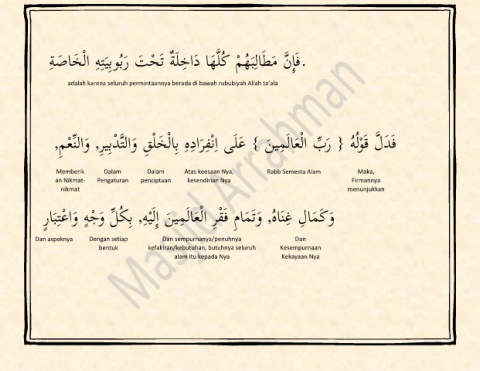 فَإِنَّ مَطَالِبَهُمْ كُلَّهَا دَاخِلَةٌ تَحْتَ رَبُوبِيَتِهِ الْخَاصَةِ.
adalah karena seluruh permintaannya berada di bawah rububiyah Allah ta'ala
فَدَلَّ قَوْلُهُ { رَبِّ الْعَالَمِينَ } عَلَى اِنْفِرَادِهِ بِالْخَلْقِ وَالتَّدْبِيرِ, وَالنِّعْمِ,
Maka, Firmannya menunjukkan
Rabb Semesta Alam
Atas keesaan Nya, kesendirian Nya
Dalam penciptaan
Dalam Pengaturan
Memberik an Nikmat-nikmat
وَكَمَالِ غِنَاهُ, وَتَمَامِ فَقْرِ الْعَالَمِينَ إِلَيْهِ, بِكُلِّ وَجْهٍ وَاعْتِبَارٍ
Dan Kesempurnaan Kekayaan Nya
Dan sempurnanya/penuhnya kefakiran/kebutuhan, butuhnya seluruh alam itu kepada Nya
Dengan setiap bentuk
Dan aspeknya
Masjid Arrahman